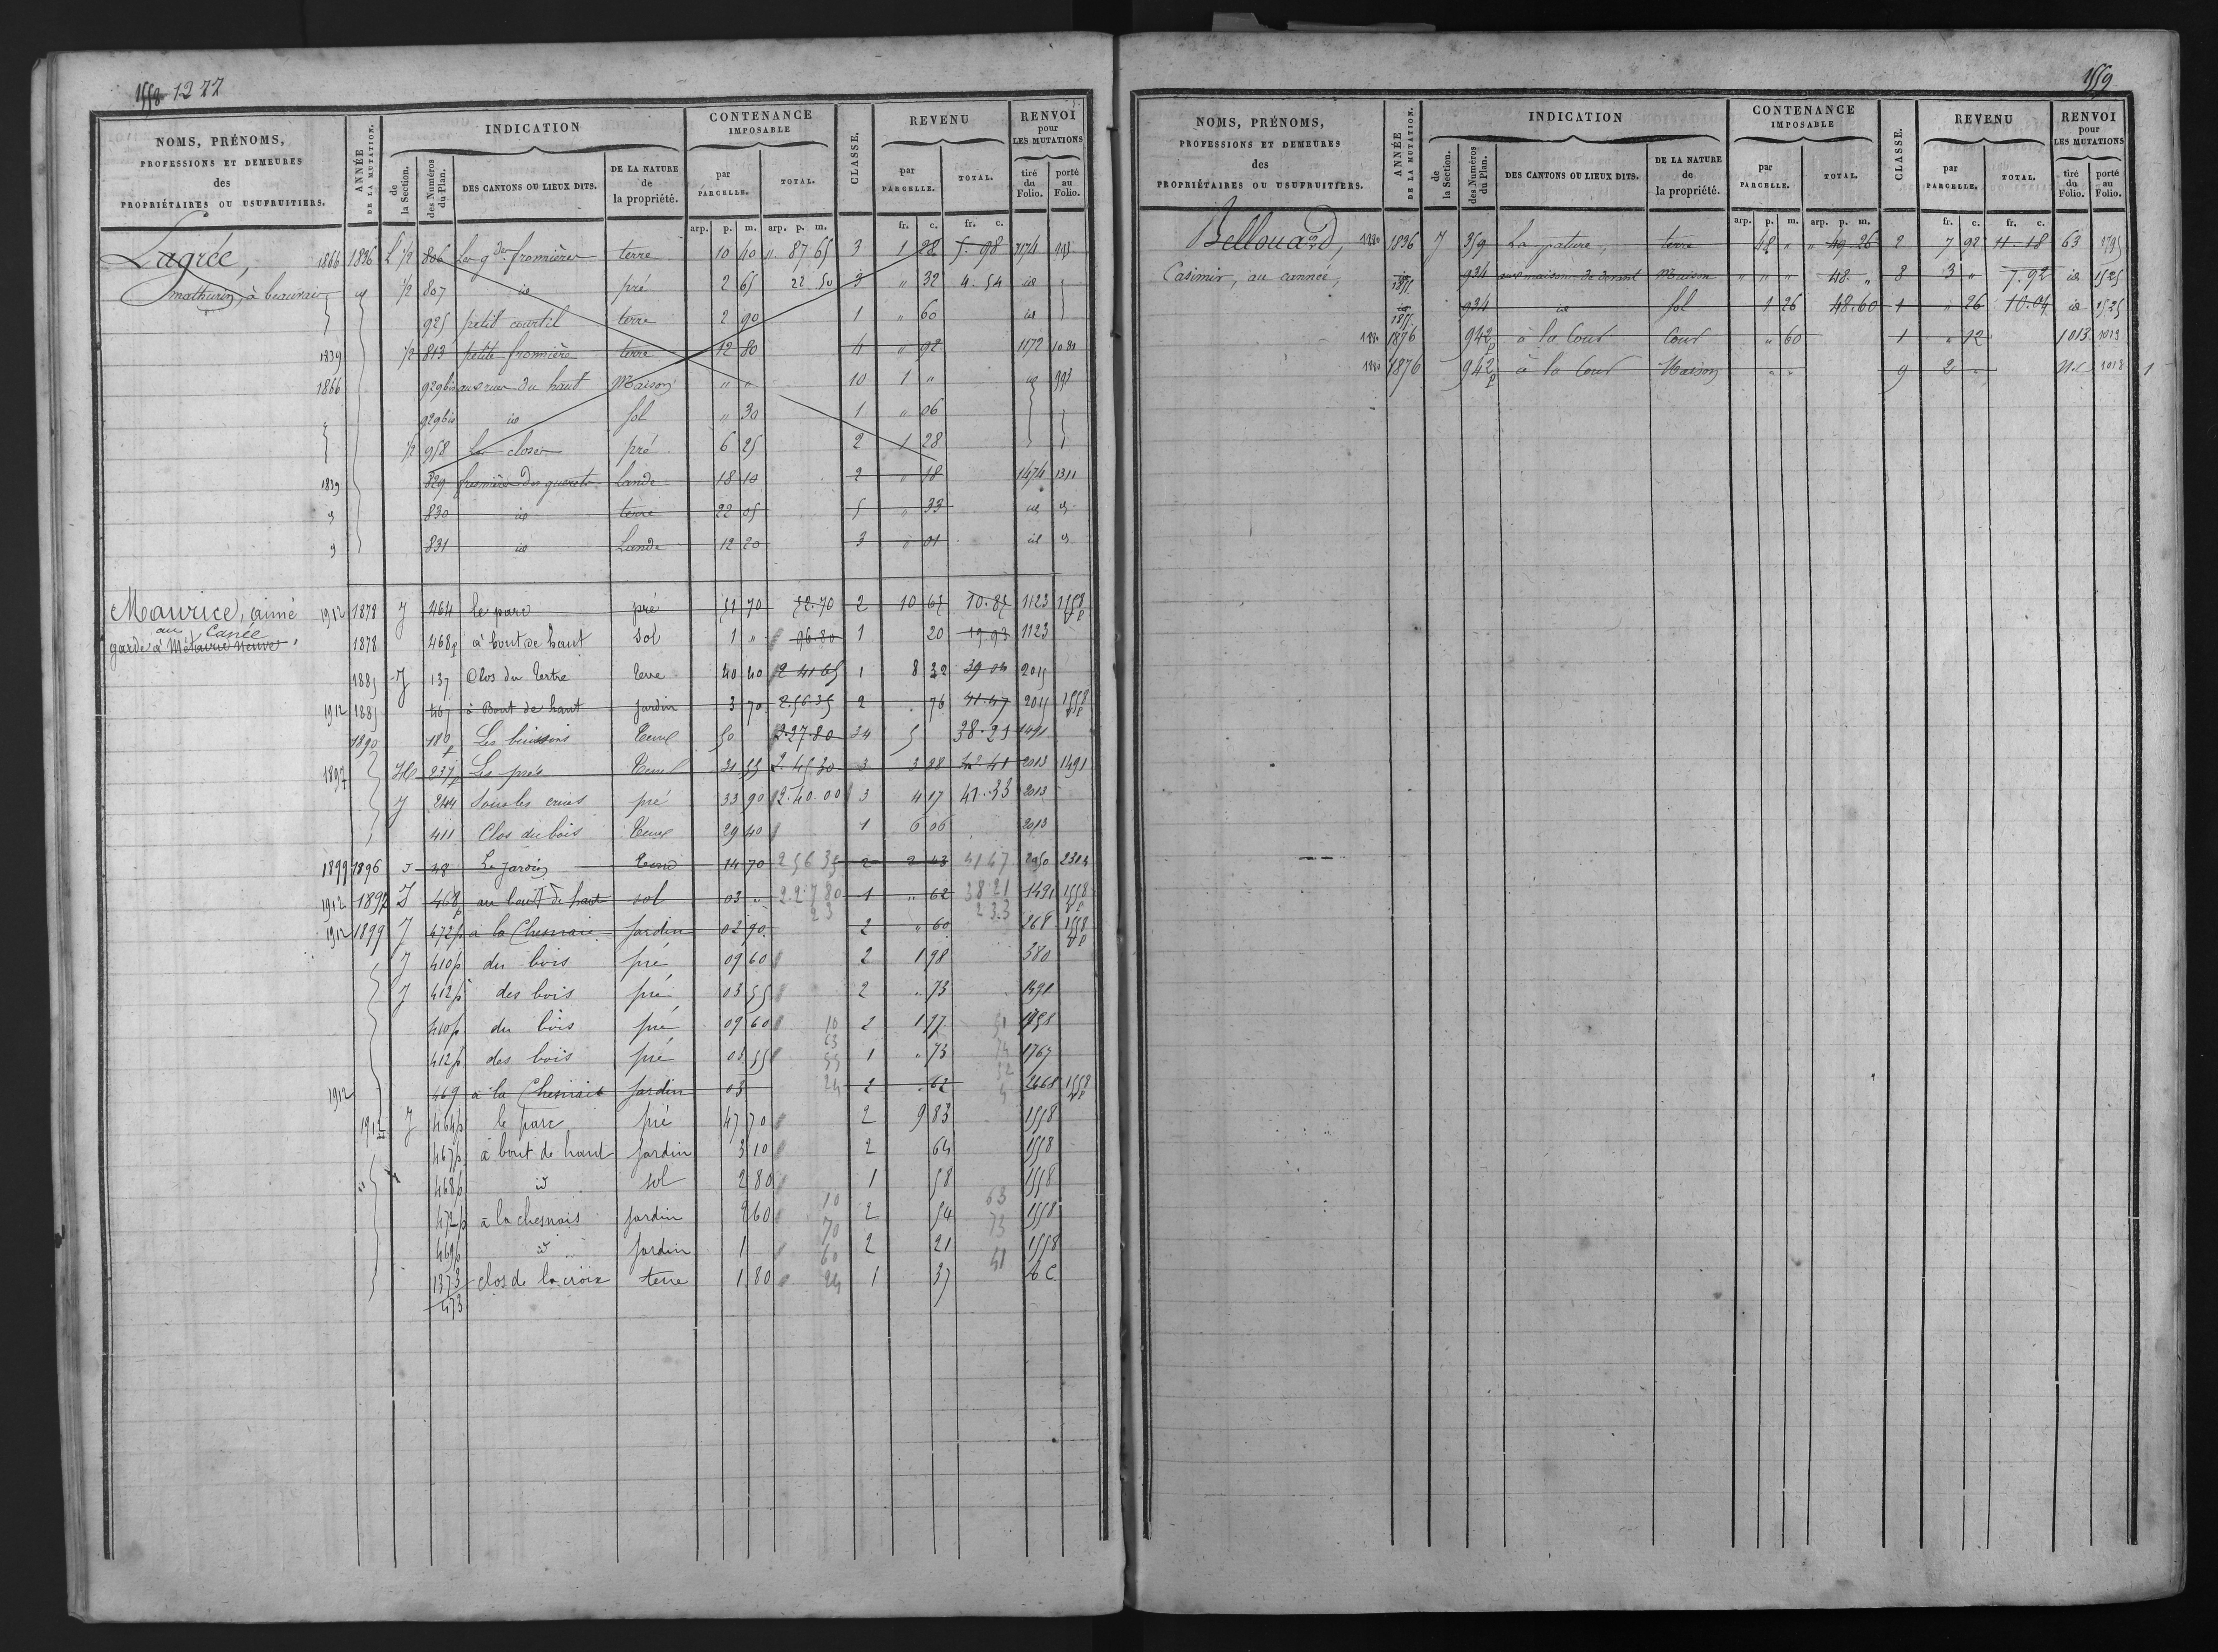 1558 1277
NOMS, PRÉNOMS, PROFESSIONS ET DEMEURES des PROPRIÉTAIRES OU USUFRUITIERS.
ANNÉE DE LA MUTATION.
INDICATION
de la Section.
des Numéros du Plan.
DES CANTONS OU LIEUX DITS.
DE LA NATURE de la propriété.
CONTENANCE IMPOSABLE
par PARCELLE.
TOTAL.
CLASSE.
REVENU
par PARCELLE.
TOTAL.
RENVOI pour LES MUTATIONS
tiré du Folio.
porté au Folio.
arp. p. m. arp. p. m. fr. c. fr. c.
Lagrée, 1866 1836 L 1/2 806 Les gdes fromières terre 10 40 " 87 65 3 1 28 5.98 993
mathurin, à beauvais 1/2 807 id pré 2 65 22 50 3 " 32 4.54 id
925 petit courtil terre 2 90 1 " 60 id
1839 1/2 813 petite fromière terre 12 80 4 " 92 1172
1866 929bis aux rues du haut Maison " " 10 1 " 993
929bis id sol " 30 1 " 06
1/2 958 Les closes pré 6 25 2 1 28
1839 829 fromière des guerets Lande 18 10 2 " 18 1474 1311
830 id terre 22 05 5 " 33 id
831 id Lande 12 20 3 " 01 id
Maurice, aimé 1912 1878 J 464 le parc pré 51 70 52.70 2 10 65 10.85 1123 1558 vp
au Canée
garde à Métairie Neuve, 1878 468p à bout de haut sol 1 " 96.80 1 20 19.93 1123
1885 J 137 Clos du tertre terre 40 40 2 41 65 1 8 32 39 04 2015
1912 1885 467 à Bout de haut jardin 3 70 2.56.35 2 . 76 41.47 2015 1558 vp
1890 180p Les buissons Terre 50 2.27.80 34 5 38.21 1491
1897 H 237p Les prés Terre 31 55 2.45 30 3 3 28 2013 1491
J 244 pré 33 90 2.40.00 3 4 17 41.33 2013
411 Clos du bois Terre 29 40 1 6 06 2013
1899 1896 J 48 Le Jardin Terre 14 70 2 56 35 2 2 43 41 47
1912 1897 J 468p au bout de haut sol 03 " 2.27 80 1 " 62 38 21 1491 1558 vp
1912 1899 J 472p à la Chesnaie Jardin 02 90 23 2 " 60 2 33 268 1558 vp
J 410p du bois pré 09 60 2 1 98 380
J 412p des bois pré 03 55 2 " 73 1491
410p du bois pré 09 60 10 2 1 97 51
412p des bois pré 03 55 63 55 1 " 73 1767
1912 469 à la Chesnaie Jardin 03 24 2 . 62 2468 1558 vp
1912 J 464p le parc pré 47 70 2 9 83 1558
467p à bout de haut Jardin 3 10 2 64 1558
468p id sol 2 80 1 58 1558
472p à la chesnais Jardin 2 60 10 2 54 63 1558
469p id Jardin 1 70 60 2 21 73 1558
1373 clos de la croix terre 1 80 24 1 37 41
473
1559
NOMS, PRÉNOMS, PROFESSIONS ET DEMEURES des PROPRIÉTAIRES OU USUFRUITIERS.
ANNÉE DE LA MUTATION.
INDICATION
de la Section.
des Numéros du Plan.
DES CANTONS OU LIEUX DITS.
DE LA NATURE de la propriété.
CONTENANCE IMPOSABLE
par PARCELLE.
TOTAL.
CLASSE.
REVENU
par PARCELLE.
TOTAL.
RENVOI pour LES MUTATIONS
tiré du Folio.
porté au Folio.
arp. p. m. arp. p. m. fr. c. fr. c.
Bellouard, 1880 1836 J 359 La pature, terre 48 " " 49 26 2 7 92 11 18 63
Casimir, au cannée, id 1855 934 aux maisons de devant Maison " " " 48. " 8 3 " 7.92 id 1525
id 1855 934 id sol 1 26 48.60 1 " 26 10.04 id 1525
1880 1876 942p à la Cour Cour " 60 1 " 12 1013 1013
1880 1876 942p à la Cour Maison " " 9 2 " N.C 1013 1